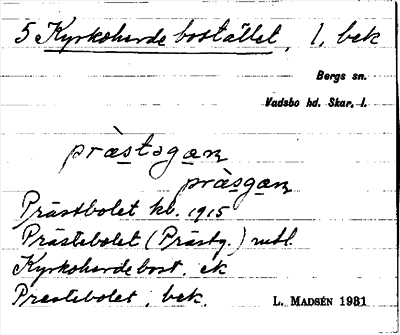 5 Kyrkoherdebostället, 1, bek
Bergs sn.
Vadsbo hd. Skar. l.
prà̀stagæn
pràsgan
Prästbolet kb. 1915
Prästebolet (Prästg.) muntl.
Kyrkoherdebost. ek
Prestebolet, bek.
L. MADSÉN 1931